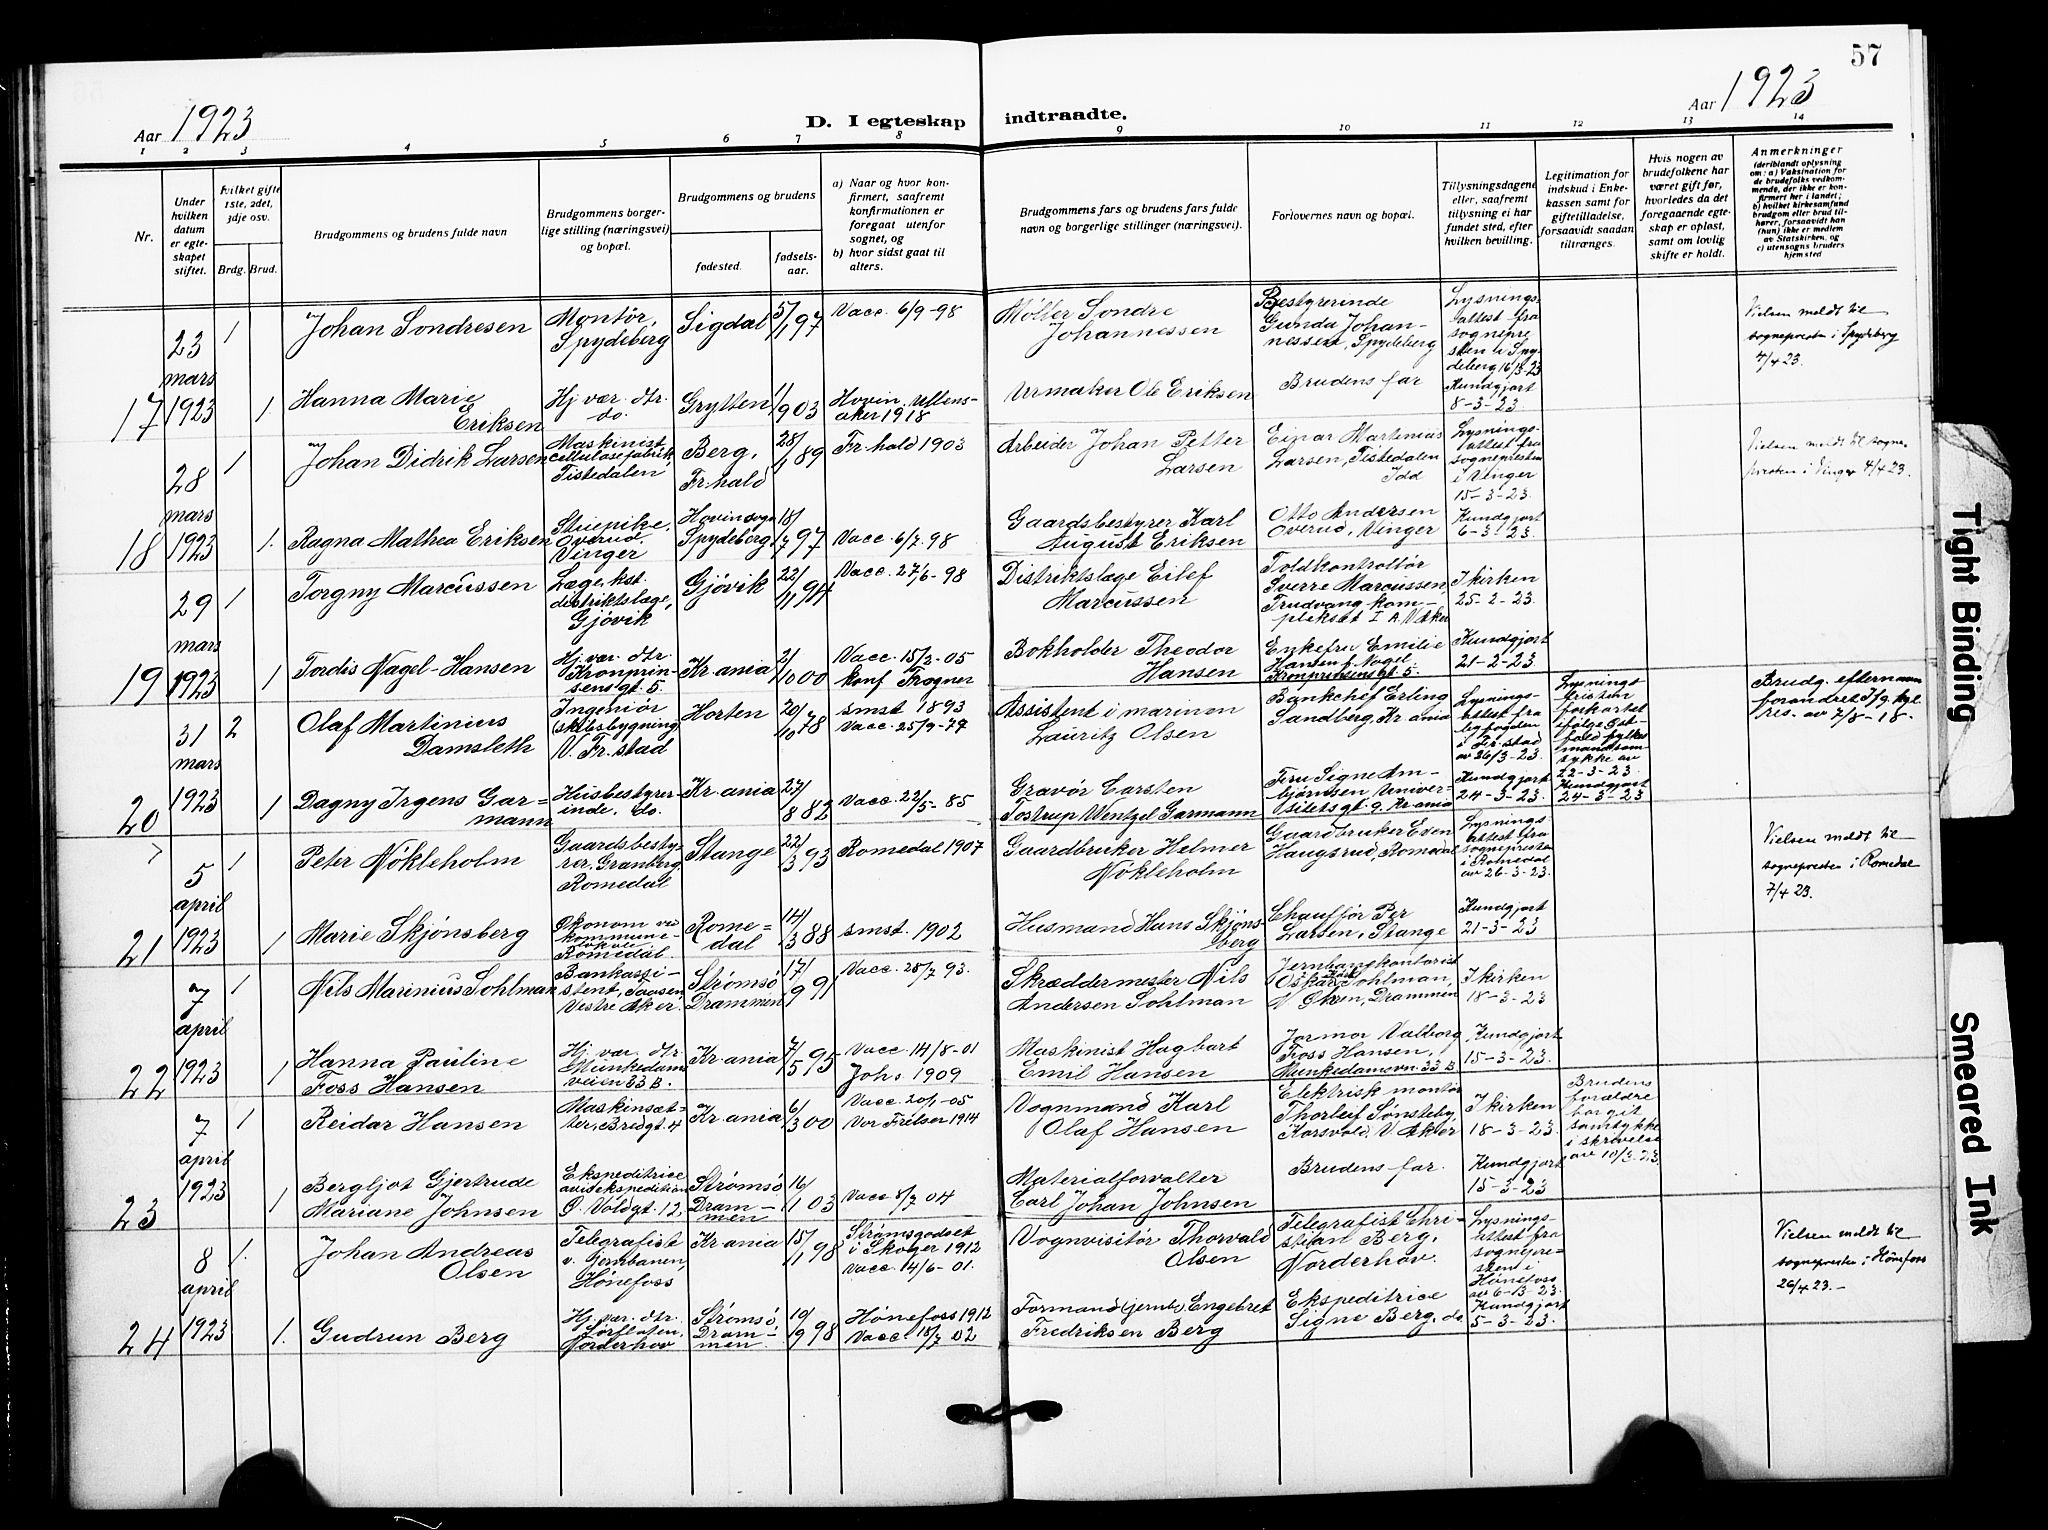 57
Aar 1923
D. I egteskap indtraadte.
Aar 1923
1 2 3 4 5 6 7 8 9 10 11 12 13 14
Nr.
Under hvilken datum er egteskapet stiftet.
hvilket gifte 1ste, 2det, 3dje osv.
Brdg. Brud.
Brudgommens og brudens fulde navn
Brudgommens borgerlige stilling (næringsvei) og bopæl.
Brudgommens og brudens
fødested.
fødselsaar.
a) Naar og hvor konfirmert, saafremt konfirmationen er foregaat utenfor sognet, og
b) hvor sidst gaat til alters.
Brudgommens fars og brudens fars fulde navn og borgerlige stillinger (næringsvei).
Forlovernes navn og bopæl.
Tillysningsdagene eller, saafremt tillysning ei har fundet sted, efter hvilken bevilling.
Legitimation for indskud i Enkekassen samt for giftetilladelse, forsaavidt saadan tiltrænges.
Hvis nogen av brudefolkene har været gift før, hvorledes da det foregaaende egteskap er opløst, samt om lovlig skifte er holdt.
Anmerkninger
(deriblandt oplysning om: a) Vaksination for de brudefolks vedkommende, der ikke er konfirmert her i landet; b) hvilket kirkesamfund brudgom eller brud tilhører, forsaavidt han (hun) ikke er medlem av Statskirken, og c) utensogns bruders hjemsted
17
23 mars 1923
1 Johan Sondresen
Montør, Spydeberg
Sigdal
5/1 97
Vacc. 6/9-98
Møller Sondre Johannessen
Bestyrerinde Gunda Johannessen, Spydeberg
Lysningsattest fra sognepresten i Spydeberg 16/3-23
Vielsen meldt til sognepresten i Spydeberg 4/4 23.
1. Hanna Marie Eriksen
Hj. vær. dtr. do.
Grytten
1903
Hovin, Ullensaker 1918
Urmaker Ole Eriksen
Brudens far
Kundgjort 8-3-23.
18
28 mars 1923
1 Johan Didrik Larsen
Maskinist cellulosefabrik, Tistedalen
Berg, Fr.hald
28/1 89
Fr.hald 1903
Arbeider Johan Petter Larsen
Einar Martinius Larsen, Tistedalen Idd
Lysningsattest fra sognepresten i Vinger 15-3-23.
Vielsen meldt til sognepresten i Vinger 4/4 23.
1. Ragna Mathea Eriksen
Stuepike, Overud, Vinger
Hovin sogn Spydeberg
18/7 97
Vacc. 6/7-98
Gaardsbestyrer Karl August Eriksen
Otto Andersen Overud, Vinger
Kundgjort 6-3-23.
19
29 mars 1923
1 Torgny Marcussen
Læge, kst. distriktslæge, Gjøvik
Gjøvik
22/11 94
Vacc. 27/6-98
Distriktslæge Eilef Marcussen
Toldkontrollør Sverre Marcussen, Trudvang kompleksat I A, V. Aker
I kirken 25-2-23.
1 Tordis Nagel-Hansen
Hj. vær. dtr. Kronprinsensgt. 5.
Kr.ania
2/10 00
Vacc. 15/2-05 konf Frogner
Bokholder Theodor Hansen
Enkefru Emilie Hansen f. Nagel. Kronprinsensgt. 5.
Kundgjort 21-2-23.
20
31 mars 1923
2 Olaf Martinius Damsleth
Ingeniør (skibsbygning) V. Fr.stad
Horten
20/10 78
smst 1893 Vacc. 25/9-79
Assistent i marinen Lauritz Olsen
Bankchef Erling Sandberg, Kr.ania
Lysningsattest fra byfogden i Fr.stad av 26/3-23.
Lysningsfristen forkortet ifølge Østfold fylkesmands samtykke av 22-3-23. Kundgjort 24-3-23
Brudg. efternavn forandret ifg. kgl. res. av 7/8-18.
1 Dagny Irgens Garmann
Husbestyrerinde, do.
Kr.ania
27/8 82
Vacc. 22/5-85
Gravør Carsten Tostrup Wentzel Garmann
Fru Signe Ambjørnsen Universitetsgt. 9. Kr.ania
Kundgjort 24-3-23.
21
5 april 1923
1 Peter Nökleholm
Gaardsbestyrer, Granberg, Romedal
Stange
22/3 93
Romedal 1907
Gaardbruker Helmer Nökleholm
Gaardbruker Even Haugsrud, Romedal
Lysningsattest fra sognepresten i Romedal av 26-3-23.
Vielsen meldt til sognepresten i Romedal 7/4 23.
1 Marie Skjönsberg
Økonom ved kommunelokale, Romedal.
Romedal
14/3 88
smst. 1902
Husmand Hans Skjönsberg
Chauffør Per Larsen, Stange
Kundgjort 21-3-23
22
7 april 1923
1 Nils Marinius Sohlman
Bankassistent, Taasen, Vestre Aker.
Strømsø Drammen
17/9 91
Vacc. 28/7 93.
Skræddermester Nils Andersen Sohlman
Jernbanekontorist Oskar Sohlman, V. Øren, Drammen
I kirken 18-3-23
1 Hanna Pauline Foss Hansen
Hj. vær. dtr. Munkedamsveien 33 B.
Kr.ania
7/5 95
Vacc. 14/8-01 Johs 1909
Maskinist Hagbart Emil Hansen
Jormor Valborg Foss Hansen, Munkedamsvn. 33 B
Kundgjort 15-3-23.
23
7 april 1923
1 Reidar Hansen
Maskinsætter, Bredgt. 4
Kr.ania
6/3 00
Vacc. 20/1-05 Vor Frelser 1914
Vognmand Karl Olaf Hansen
Elektrisk montør Thorleif Sønsteby, Korsvold, V. Aker
I kirken 18-3-23.
Brudens forældre har git samtykke i skrivelse av 10/3-23.
1 Bergljot Gjertrude Mariane Johnsen
Ekspeditrice avisekspedition Ø. Voldgt. 12.
Strømsø Drammen
16/1 03
Vacc 8/7 04
Materialforvalter Carl Johan Johnsen
Brudens far.
Kundgjort 15-3-23
24
8 april 1923
1. Johan Andreas Olsen
Telegrafist v. Jernbanen, Hønefoss
Kr.ania
15/11 98
Strømsgodset i Skoger 1912 Vacc. 14/6-01.
Vognvisitør Thorvald Olsen
Telegrafist Christian Berg, Norderhov.
Lysningsattest fra sognepresten i Hønefoss av 6-13-23.
Vielsen meldt til sognepresten i Hønefoss 26/4 23.-
1. Gudrun Berg
Hj. vær. dtr. Norderhov
Strømsø, Drammen.
19/9 98
Hønefoss 1912 Vacc. 15/7 02
Formand (jernb.) Engebret Fredriksen Berg
Ekspeditrice Signe Berg, do.
Kundgjort 5-3-23.
Tight Binding
Smeared Ink